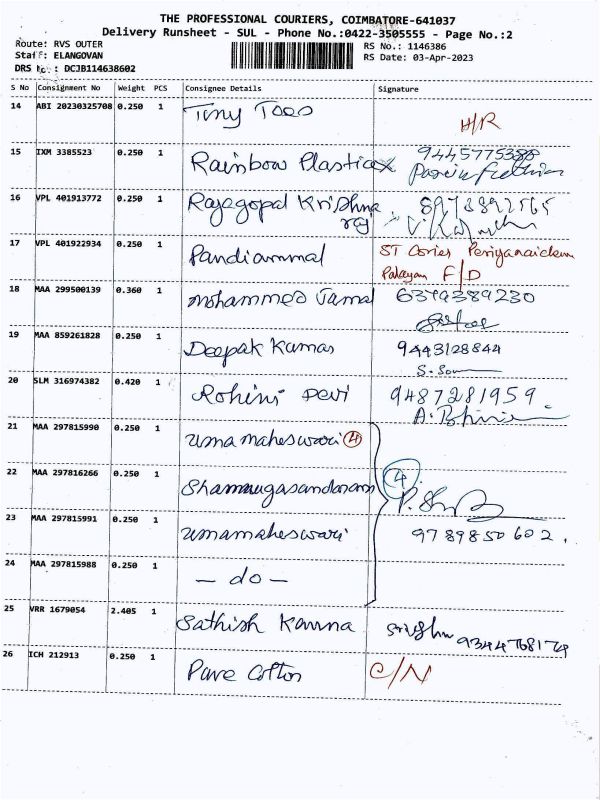 THE PROFESSIONAL COURIERS, COIMBATORE-641037
Delivery Runsheet - SUL - Phone No.:0422-3505555 - Page No.:2
Route: RVS OUTER
RS No.: 1146386
Staff: ELANGOVAN
RS Date: 03-Apr-2023
DRS No.: DCJB114638602
S No Consignment No Weight PCS Consignee Details Signature
14 ABI 20230325708 0.250 1 Tiny Toes H/R
15 IXM 3385523 0.250 1 Rainbow Plasticex 9445775388
16 VPL 401913772 0.250 1 Rajagopal Krishna 8973892565
raj
17 VPL 401922934 0.250 1 Pandiammal ST Cories Periyanaicken
Palayam F/D
18 MAA 299500139 0.360 1 Mohammed Jamal 6379389230
19 MAA 859261828 0.250 1 Deepak Kumar 9443128844
20 SLM 316974382 0.420 1 Rohini Devi 9487281959.
21 MAA 297815990 0.250 1 Umamaheswari 4
22 MAA 297816266 0.250 1 Shanmugasundaram 4
23 MAA 297815991 0.250 1 Umamaheswari 9789850602.
24 MAA 297815988 0.250 1 - do -
25 VRR 1679054 2.405 1 Sathish Kanna 9344768174
26 ICH 212913 0.250 1 Pave Cotton C/N